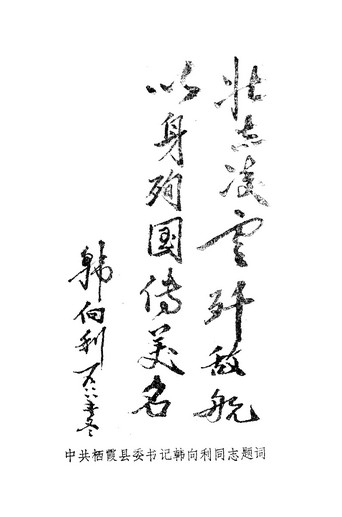 壮志凌雲歼敌舰
以身殉国傳美名
韩向利
中共栖霞县委书记韩向利同志题词